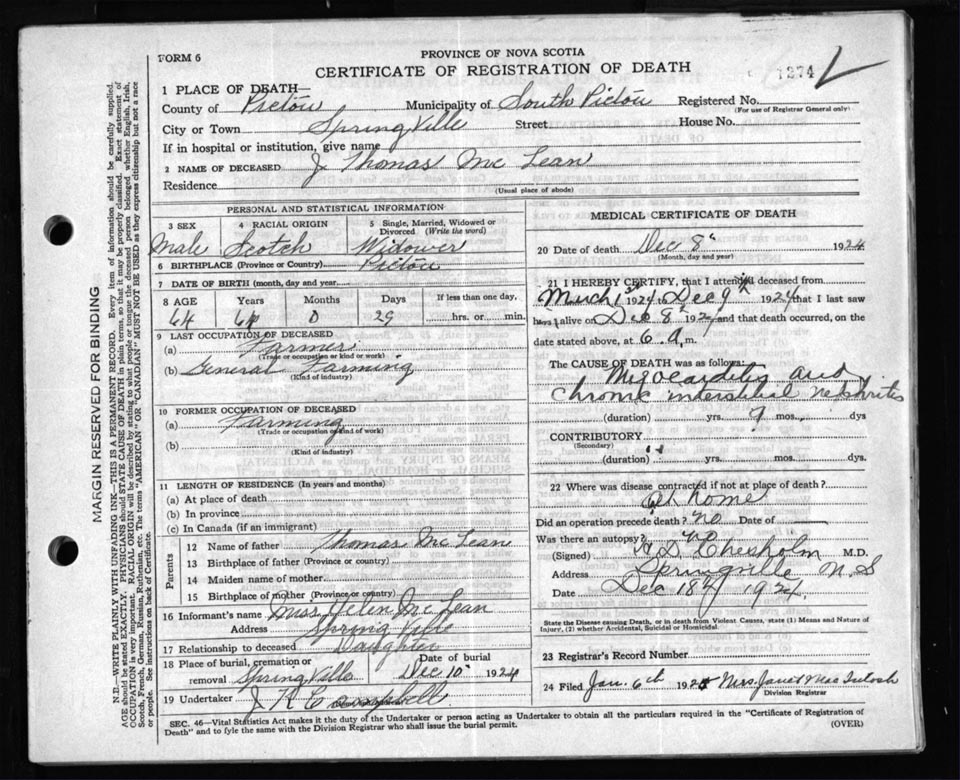 FORM 6
PROVINCE OF NOVA SCOTIA
CERTIFICATE OF REGISTRATION OF DEATH
1274
1 PLACE OF DEATH—
County of Pictou Municipality of South Pictou Registered No.
(For use of Registrar General only)
City or Town Spring Ville Street House No.
If in hospital or institution, give name
2 NAME OF DECEASED J Thomas Mc Lean
Residence
(Usual place of abode)
PERSONAL AND STATISTICAL INFORMATION
3 SEX 4 RACIAL ORIGIN 5 Single, Married, Widowed or Divorced (Write the word)
Male Scotch Widower
6 BIRTHPLACE (Province or Country) Pictou
7 DATE OF BIRTH (month, day and year)
8 AGE Years Months Days If less than one day,
64 64 0 29 hrs. or min.
9 LAST OCCUPATION OF DECEASED
(a) Farmer
(Trade or occupation or kind or work)
(b) General Farming
(Kind of industry)
10 FORMER OCCUPATION OF DECEASED
(a) Farming
(Trade or occupation or kind of work)
(b)
(Kind of industry)
11 LENGTH OF RESIDENCE (In years and months)
(a) At place of death
(b) In province
(c) In Canada (if an immigrant)
Parents
12 Name of father Thomas Mc Lean
13 Birthplace of father (Province or country)
14 Maiden name of mother
15 Birthplace of mother (Province or country)
16 Informant's name Miss Helen Mc Lean
Address Spring Ville
17 Relationship to deceased Daughter
18 Place of burial, cremation or removal Spring Ville Date of burial Dec 10 1924
19 Undertaker J R Campbell
MEDICAL CERTIFICATE OF DEATH
20 Date of death Dec 8th 1924
(Month, day and year)
21 I HEREBY CERTIFY, that I attended deceased from
March 1924 to Dec 9th 1924 that I last saw
alive on Dec 8th 1924 and that death occurred, on
date stated above, at 6 a. m.
The CAUSE OF DEATH was as follows:
Myocarditis and
Chronic interstitial Nephritis
(duration) yrs. 9 mos. dys
CONTRIBUTORY
(Secondary)
(duration) yrs. mos. dys
22 Where was disease contracted if not at place of death?
At home
Did an operation precede death? no Date of
Was there an autopsy? no
(Signed) Chesholm M.D.
Address Springville N.S
Date Dec 18th 1924
State the Disease causing Death, or in death from Violent Causes, state (1) Means and Nature of Injury, (2) whether Accidental, Suicidal or Homicidal.
23 Registrar's Record Number
24 Filed Jan. 6th 192 Mrs. Janet MacIntosh
Division Registrar
SEC. 46—Vital Statistics Act makes it the duty of the Undertaker or person acting as Undertaker to obtain all the particulars required in the "Certificate of Registration of
Death" and to fyle the same with the Division Registrar who shall issue the burial permit.
(OVER)
MARGIN RESERVED FOR BINDING
N.B.—WRITE PLAINLY WITH UNFADING INK—THIS IS A PERMANENT RECORD. Every item of information should be carefully supplied.
AGE should be stated EXACTLY. PHYSICIANS should STATE CAUSE OF DEATH in plain terms, so that it may be properly classified. Exact statement of
OCCUPATION is very important. RACIAL ORIGIN will be described by stating to what people or tongue the deceased person belonged, whether English, Irish,
Scotch, French, German, Russian, Ruthenian, etc. The terms "AMERICAN" OR "CANADIAN" MUST NOT BE USED as they express citizenship but not a race
or people. See instructions on back of Certificate.